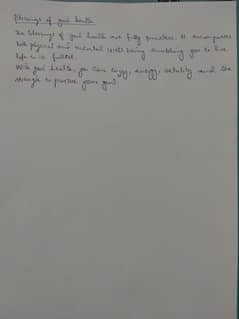 Blessings of good health
The blessings of good health are fully priceless. It encompasses
both physical and mental well being enabling you to live
life in its fullest.
With good health, you can enjoy, energy, vitality and the
strength to pursue your goal